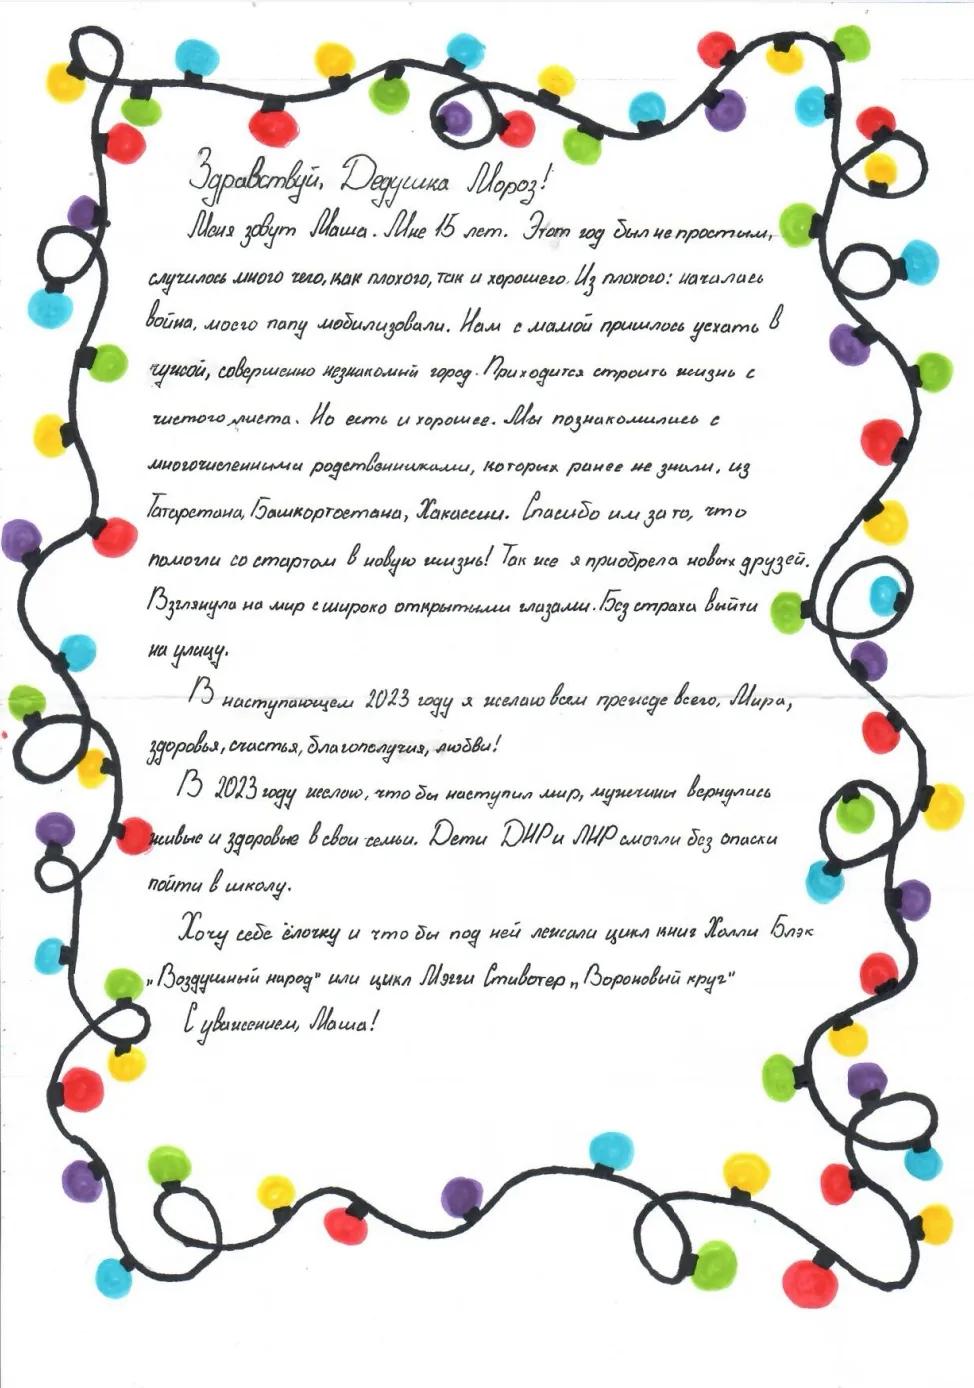 Здравствуй, Дедушка Мороз!
Меня зовут Маша. Мне 15 лет. Этот год был не простым,
случилось много чего, как плохого, так и хорошего. Из плохого: началась
война, моего папу мобилизовали. Нам с мамой пришлось уехать в
чужой, совершенно незнакомый город. Приходится строить жизнь с
чистого листа. Но есть и хорошее. Мы познакомились с
многочисленными родственниками, которых ранее не знали, из
Татарстана, Башкортостана, Хакассии. Спасибо им за то, что
помогли со стартом в новую жизнь! Так же я приобрела новых друзей.
Взглянула на мир с широко открытыми глазами. Без страха выйти
на улицу.
В наступающем 2023 году я желаю всем прежде всего, Мира,
здоровья, счастья, благополучия, любви!
В 2023 году желаю, что бы наступил мир, мужчины вернулись
живые и здоровые в свои семьи. Дети ДНР и ЛНР смогли без опаски
пойти в школу.
Хочу себе ёлочку и что бы под ней лежали цикл книг Холли Блэк
„Воздушный народ" или цикл Мэгги Стивотер „Вороновый круг"
С уважением, Маша!